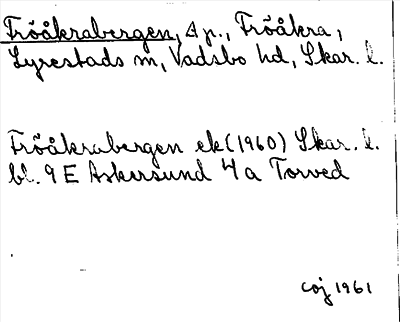 Fröåkrabergen, 4 p., Fröåkra,
Lyrestads sn, Vadsbo hd, Skar. l.
Fröåkrabergen ek (1960) Skar. l.
bl. 9 E Askersund 4 a Torved
coj 1961